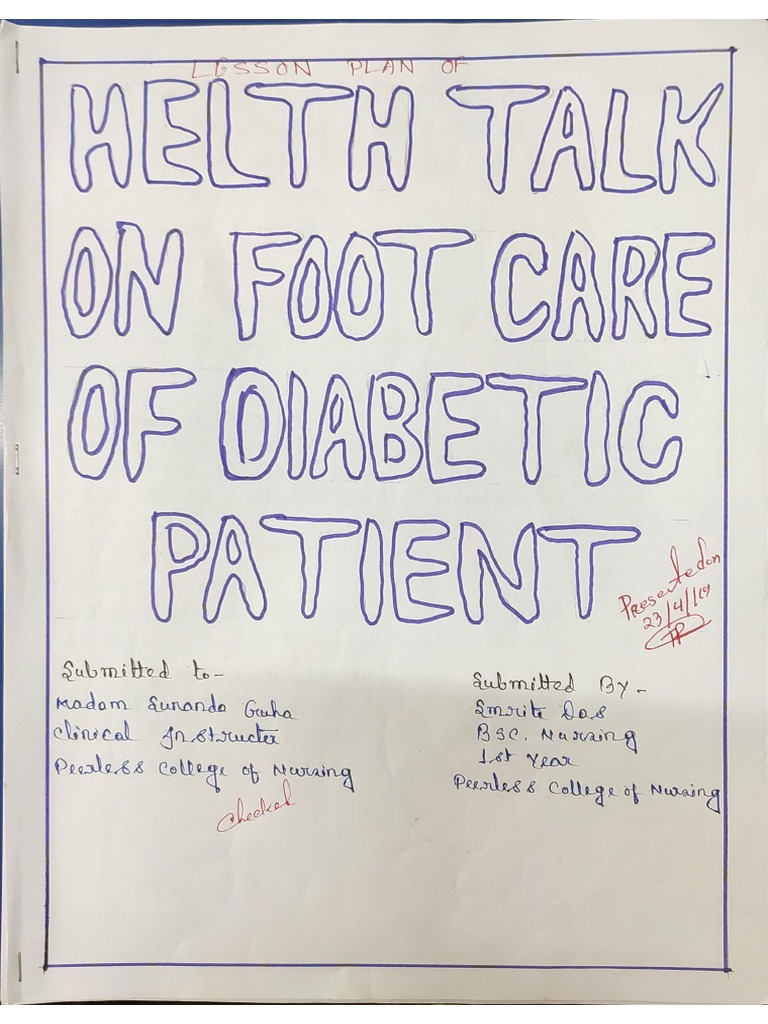 LESSON PLAN OF
HELTH TALK
ON FOOT CARE
OF DIABETIC
PATIENT
Presented on
23/4/19
Submitted to-
Madam Sunanda Guha
Clinical Instructer
Peerless College of Nursing
Checked
Submitted By-
Smrite Das
BSC. Nursing
1st Year
Peerless College of Nursing